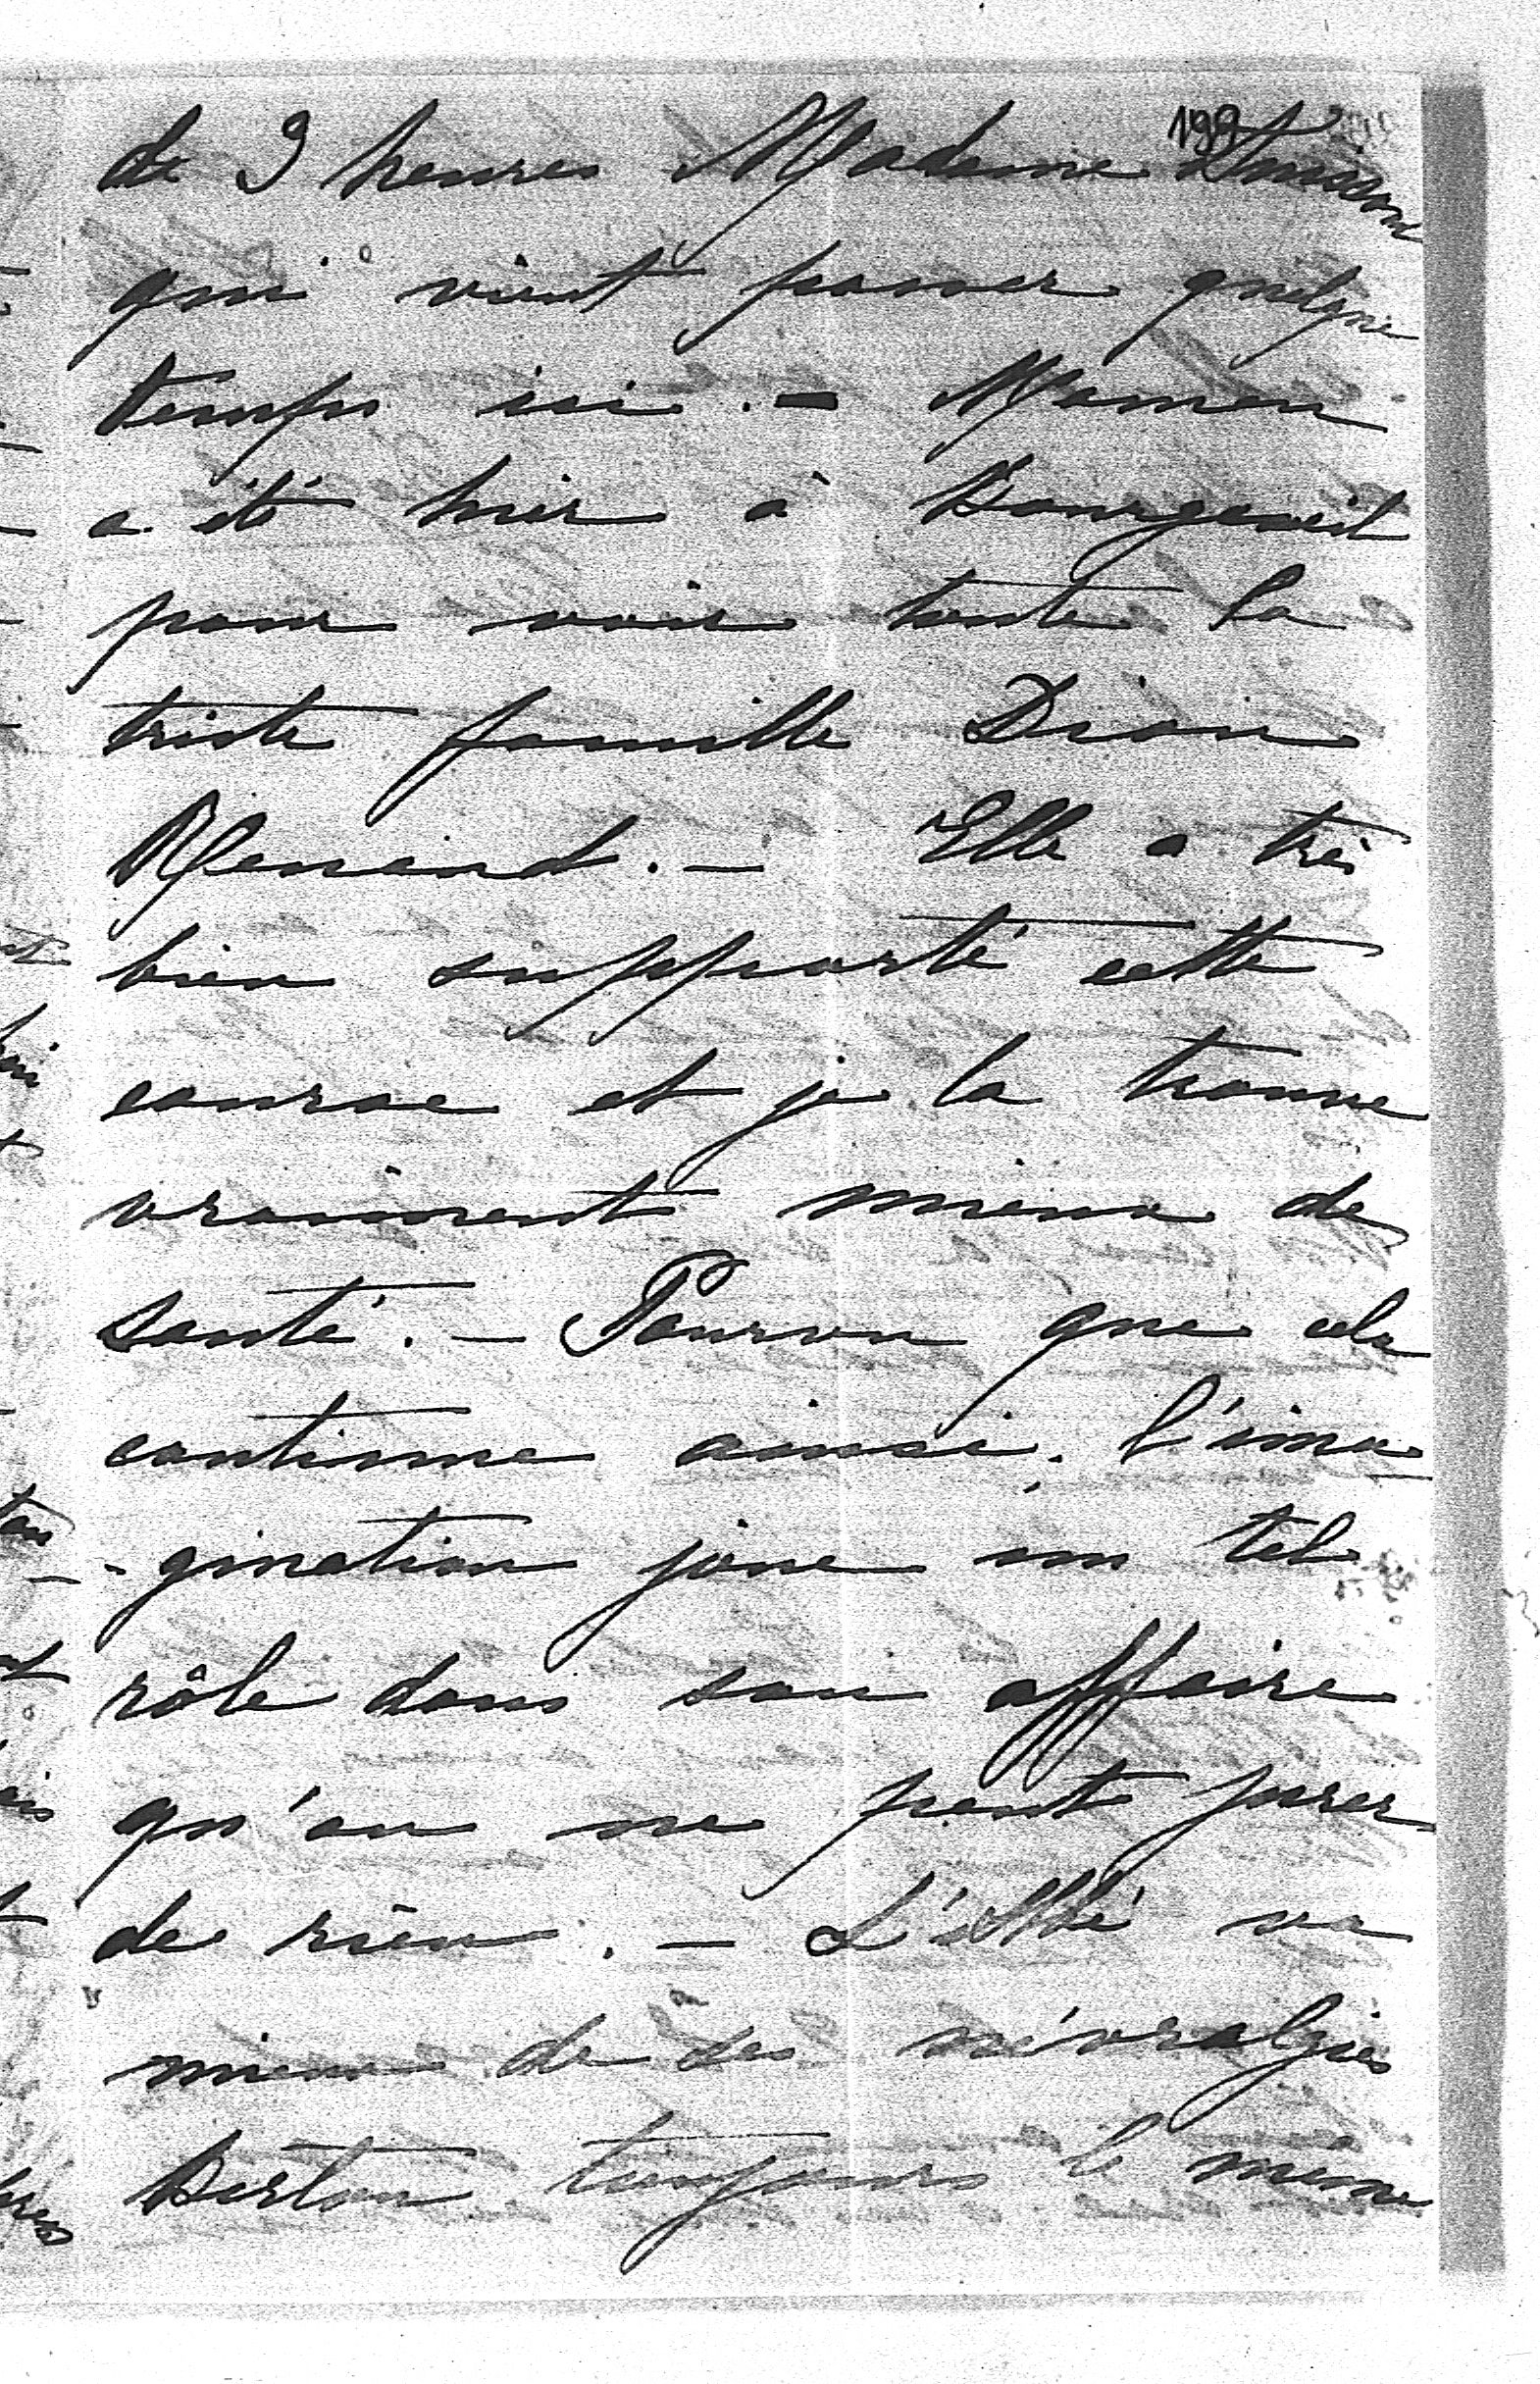 198
de 9 heures Madame
qui vient passer quelque
temps ici. - Maman
a été hier à Bourgueil
pour voir toute la
triste famille Drion
Renand. - Elle a très
bien supporté cette
course et je la trouve
vraiment mieux de
santé. - Pourvu que cela
continue ainsi. l'ima
-gination joue un tel
rôle dans son affaire
qu'on ne peut jurer
de rien. - L'abbé va
mieux de ses névralgies
Berton toujours le même